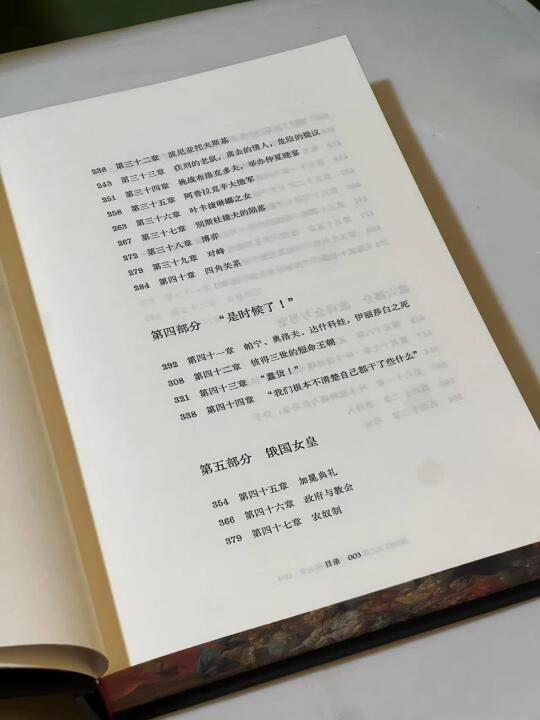 238 第三十二章 波尼亚托夫斯基
243 第三十三章 获刑的老鼠,离去的情人,危险的提议
251 第三十四章 挑战布洛克多夫,举办仲夏晚宴
258 第三十五章 阿普拉克辛大撤军
263 第三十六章 叶卡捷琳娜之女
267 第三十七章 别斯杜捷夫的陨落
272 第三十八章 博弈
279 第三十九章 对峙
284 第四十章 四角关系
第四部分 “是时候了!”
292 第四十一章 帕宁、奥洛夫、达什科娃,伊丽莎白之死
308 第四十二章 彼得三世的短命王朝
321 第四十三章 “蠢货!”
338 第四十四章 “我们根本不清楚自己都干了些什么”
第五部分 俄国女皇
354 第四十五章 加冕典礼
366 第四十六章 政府与教会
379 第四十七章 农奴制
目录 003